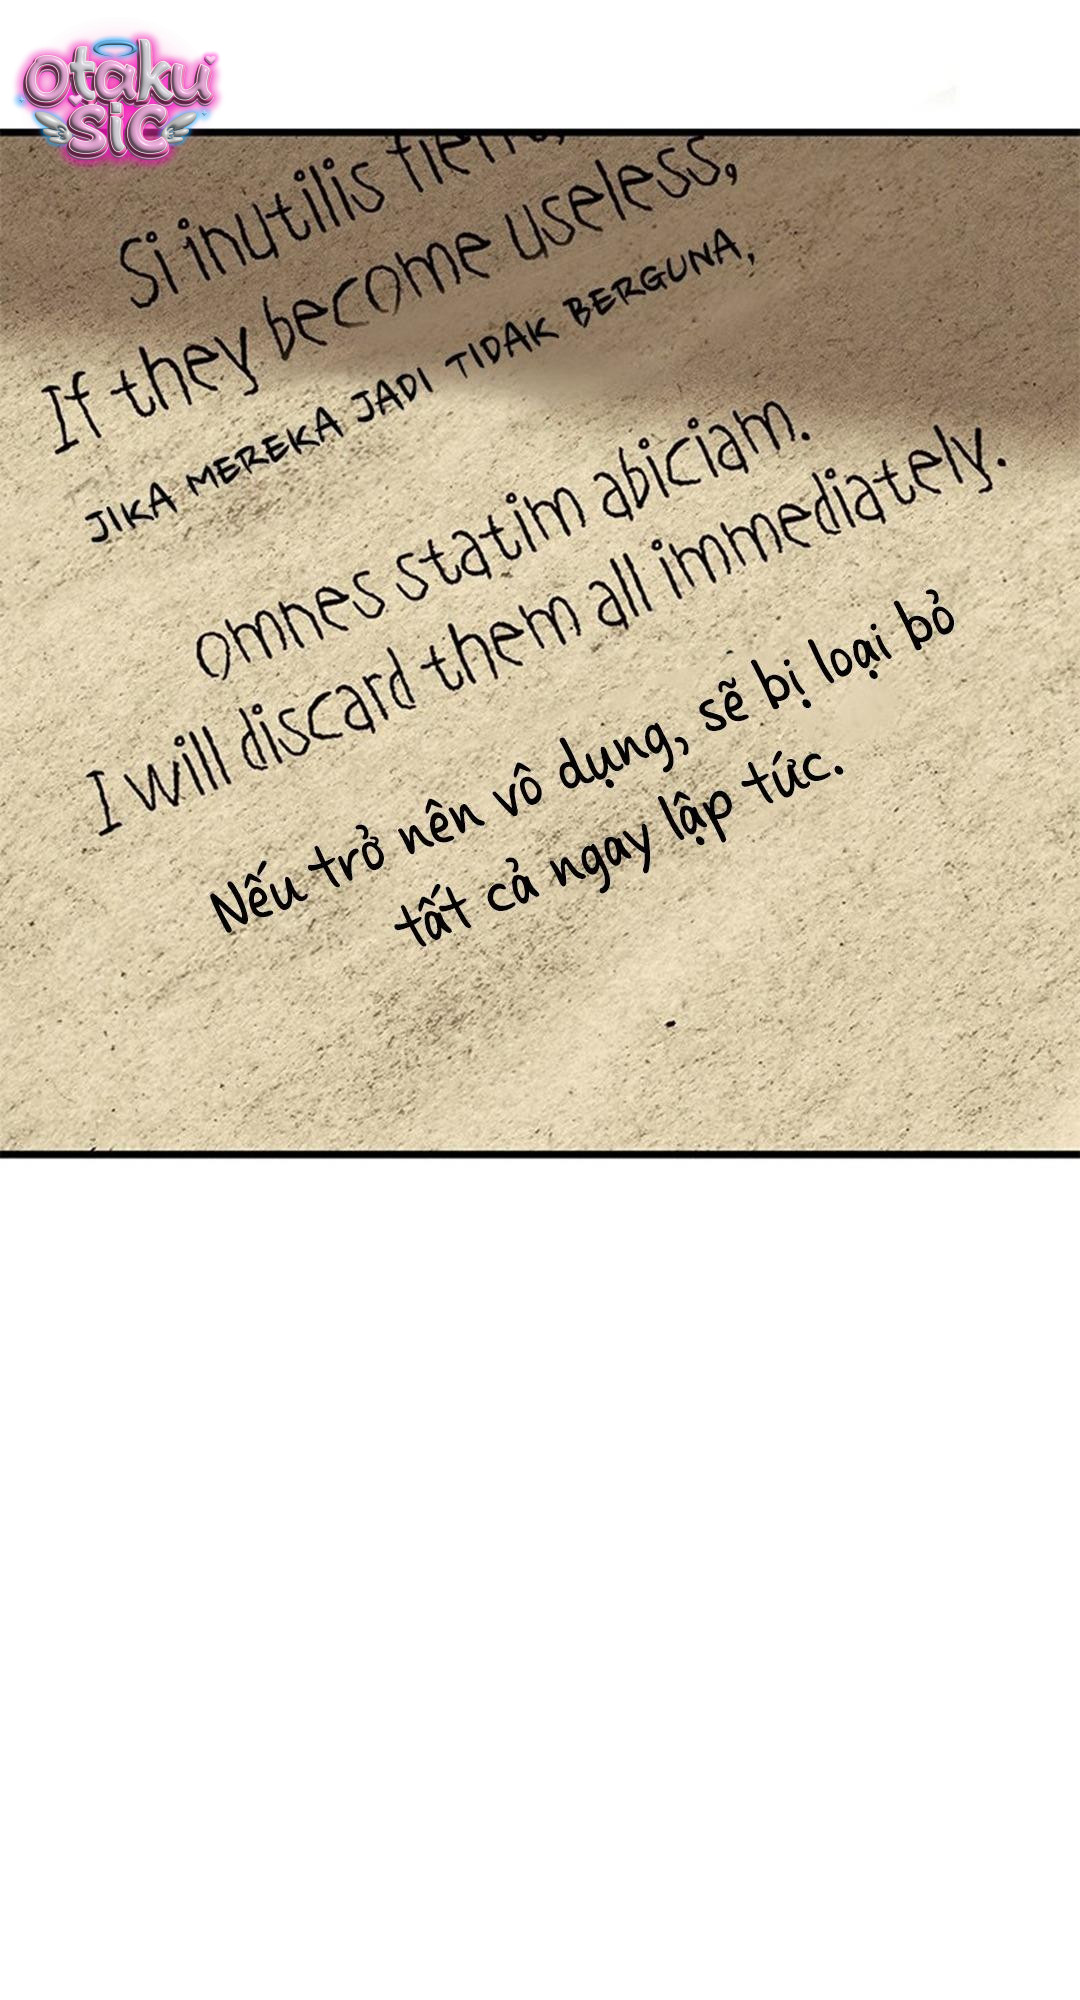 Otaku
SiC
Si inutilis
If they become useless,
JIKA MEREKA JADI TIDAK BERGUNA,
omnes statim abiciam.
I will discard them all immediately.
Nếu trở nên vô dụng, sẽ bị loại bỏ
tất cả ngay lập tức.